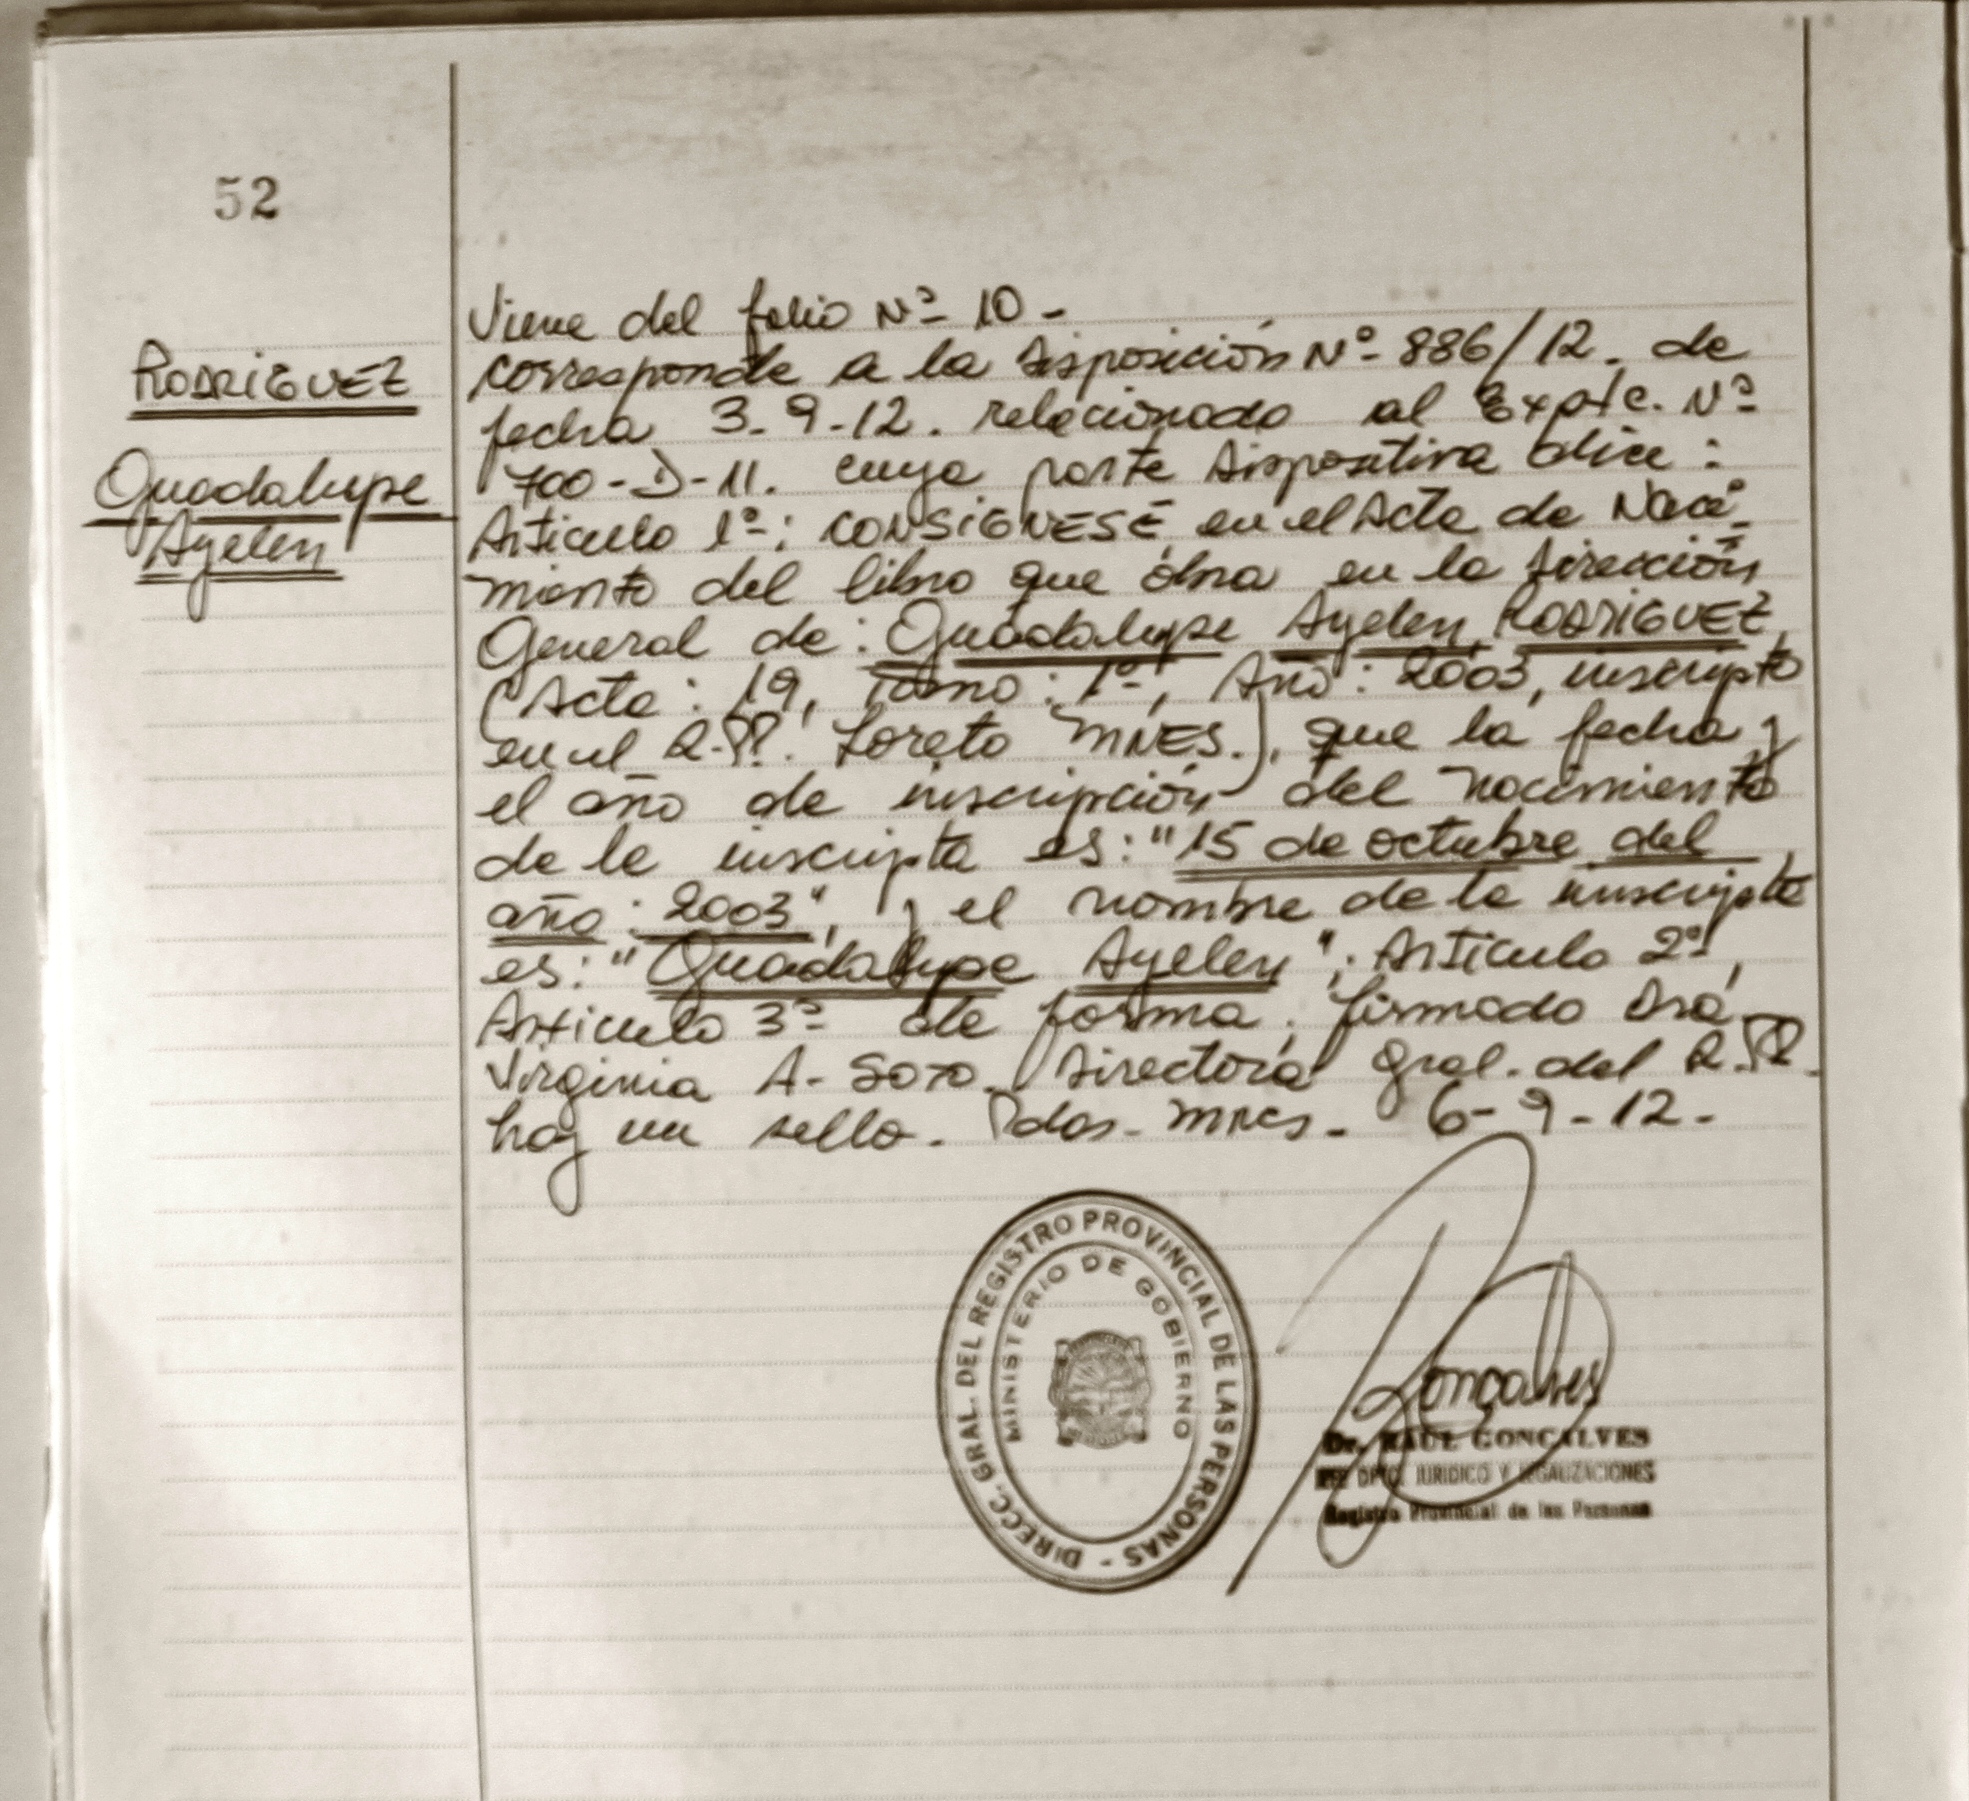 52
RODRIGUEZ
Guadalupe
Ayelen
Viene del folio Nº 10 -
corresponde a la Disposición Nº 886/12. de
fecha 3-9-12. relacionado al Expte. Nº
700-D-11. cuya parte Dispositiva dice :
Articulo 1º: CONSIGNESE en el Acta de Naci-
miento del libro que obra en la Dirección
General de: Guadalupe Ayelen RODRIGUEZ
(Acta: 19, Tomo: 1º, Año: 2003, inscripto
en el R.PP. Loreto MNES.), que la fecha y
el año de inscripción del nacimiento
de la inscripta es: "15 de octubre del
año: 2003", y el nombre de la inscripta
es: "Guadalupe Ayelen". Articulo 2º,
Articulo 3º de forma. firmado Dra
Virginia A. SOTO. Directora Gral. del R.PP.
hay un sello. Pdas. Mnes. 6-9-12.
DIRECC. GRAL. DEL REGISTRO PROVINCIAL DE LAS PERSONAS -
MINISTERIO DE GOBIERNO
Gonçalves
Dr. RAUL GONCALVES
JEFE DPTO. JURIDICO Y LEGALIZACIONES
Registro Provincial de las Personas